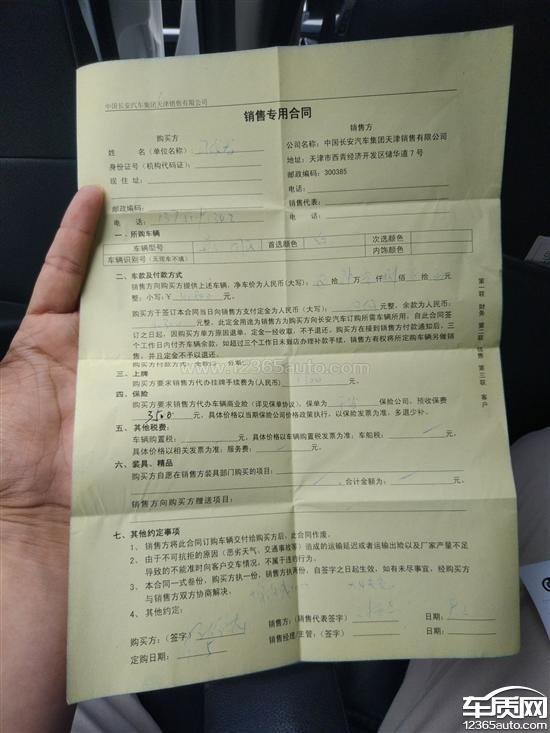 中国长安汽车集团天津销售有限公司
销售专用合同
购买方
姓 名（单位名称）：
身份证号（机构代码证）：
现 住 址：
邮政编码：
电 话：
销售方
公司名称：中国长安汽车集团天津销售有限公司
地址：天津市西青经济开发区储华道7号
邮政编码：300385
电话：
销售代表：
一、所购车辆
车辆型号 首选颜色 次选颜色
车辆识别号（无现车不填） 内饰颜色
二、车款及付款方式
销售方向购买方提供上述车辆，净车价为人民币（大写）： 拾 万 仟 佰 拾 元
整，小写：￥ 元。
购买方于签订本合同当日向销售方支付定金为人民币（大写）： 元整，余款为人民币：
元整，此定金用途为销售方为购买方向长安汽车订购所需车辆所用，自此合同签
订之日起，因购买方单方原因退单，定金一经收取，不予退还。购买方在接到销售方付款通知后，三
个工作日内付齐车辆余款，如超过三个工作日未到店办理补款手续，销售方有权将所定购车辆另做销
售，并且定金不予以退还。
购买方付款方式：
三、上牌
购买方要求销售方代办挂牌手续费为（人民币）： 元。
四、保险
购买方要求销售方代办车辆商业险（详见保单协议），保单为 保险公司，预收保费
3500 元，具体价格以当期保险公司价格政策执行，以保险发票为准，多退少补。
五、其他税费：
车辆购置税： 元，具体价格以车辆购置税发票为准；车船税： 元，
具体价格以相关发票为准；服务费： 元；
六、装具、精品
购买方自愿在销售方装具部门购买的项目：
，合计金额为： 元。
销售方向购买方赠送项目：
七、其他约定事项
1、 销售方将此合同订购车辆交付给购买方后，此合同作废。
2、 由于不可抗拒的原因（恶劣天气、交通事故等）造成的运输延迟或者运输出险以及厂家产量不足
导致的不能准时向客户交车情况，不属于违约行为。
3、 本合同一式叁份，购买方执一份，销售方执两份，自签字之日起生效，如有未尽事宜，经购买方
与销售方双方协商解决。
4、 其他约定：
购买方：（签字）
定购日期： 5
销售方：（销售代表签字） 日期：
销售经理/主管：（签字） 日期：
第一联 财务 第二联 销售 第三联 客户
www.12365auto.com
车质网
12365auto.com